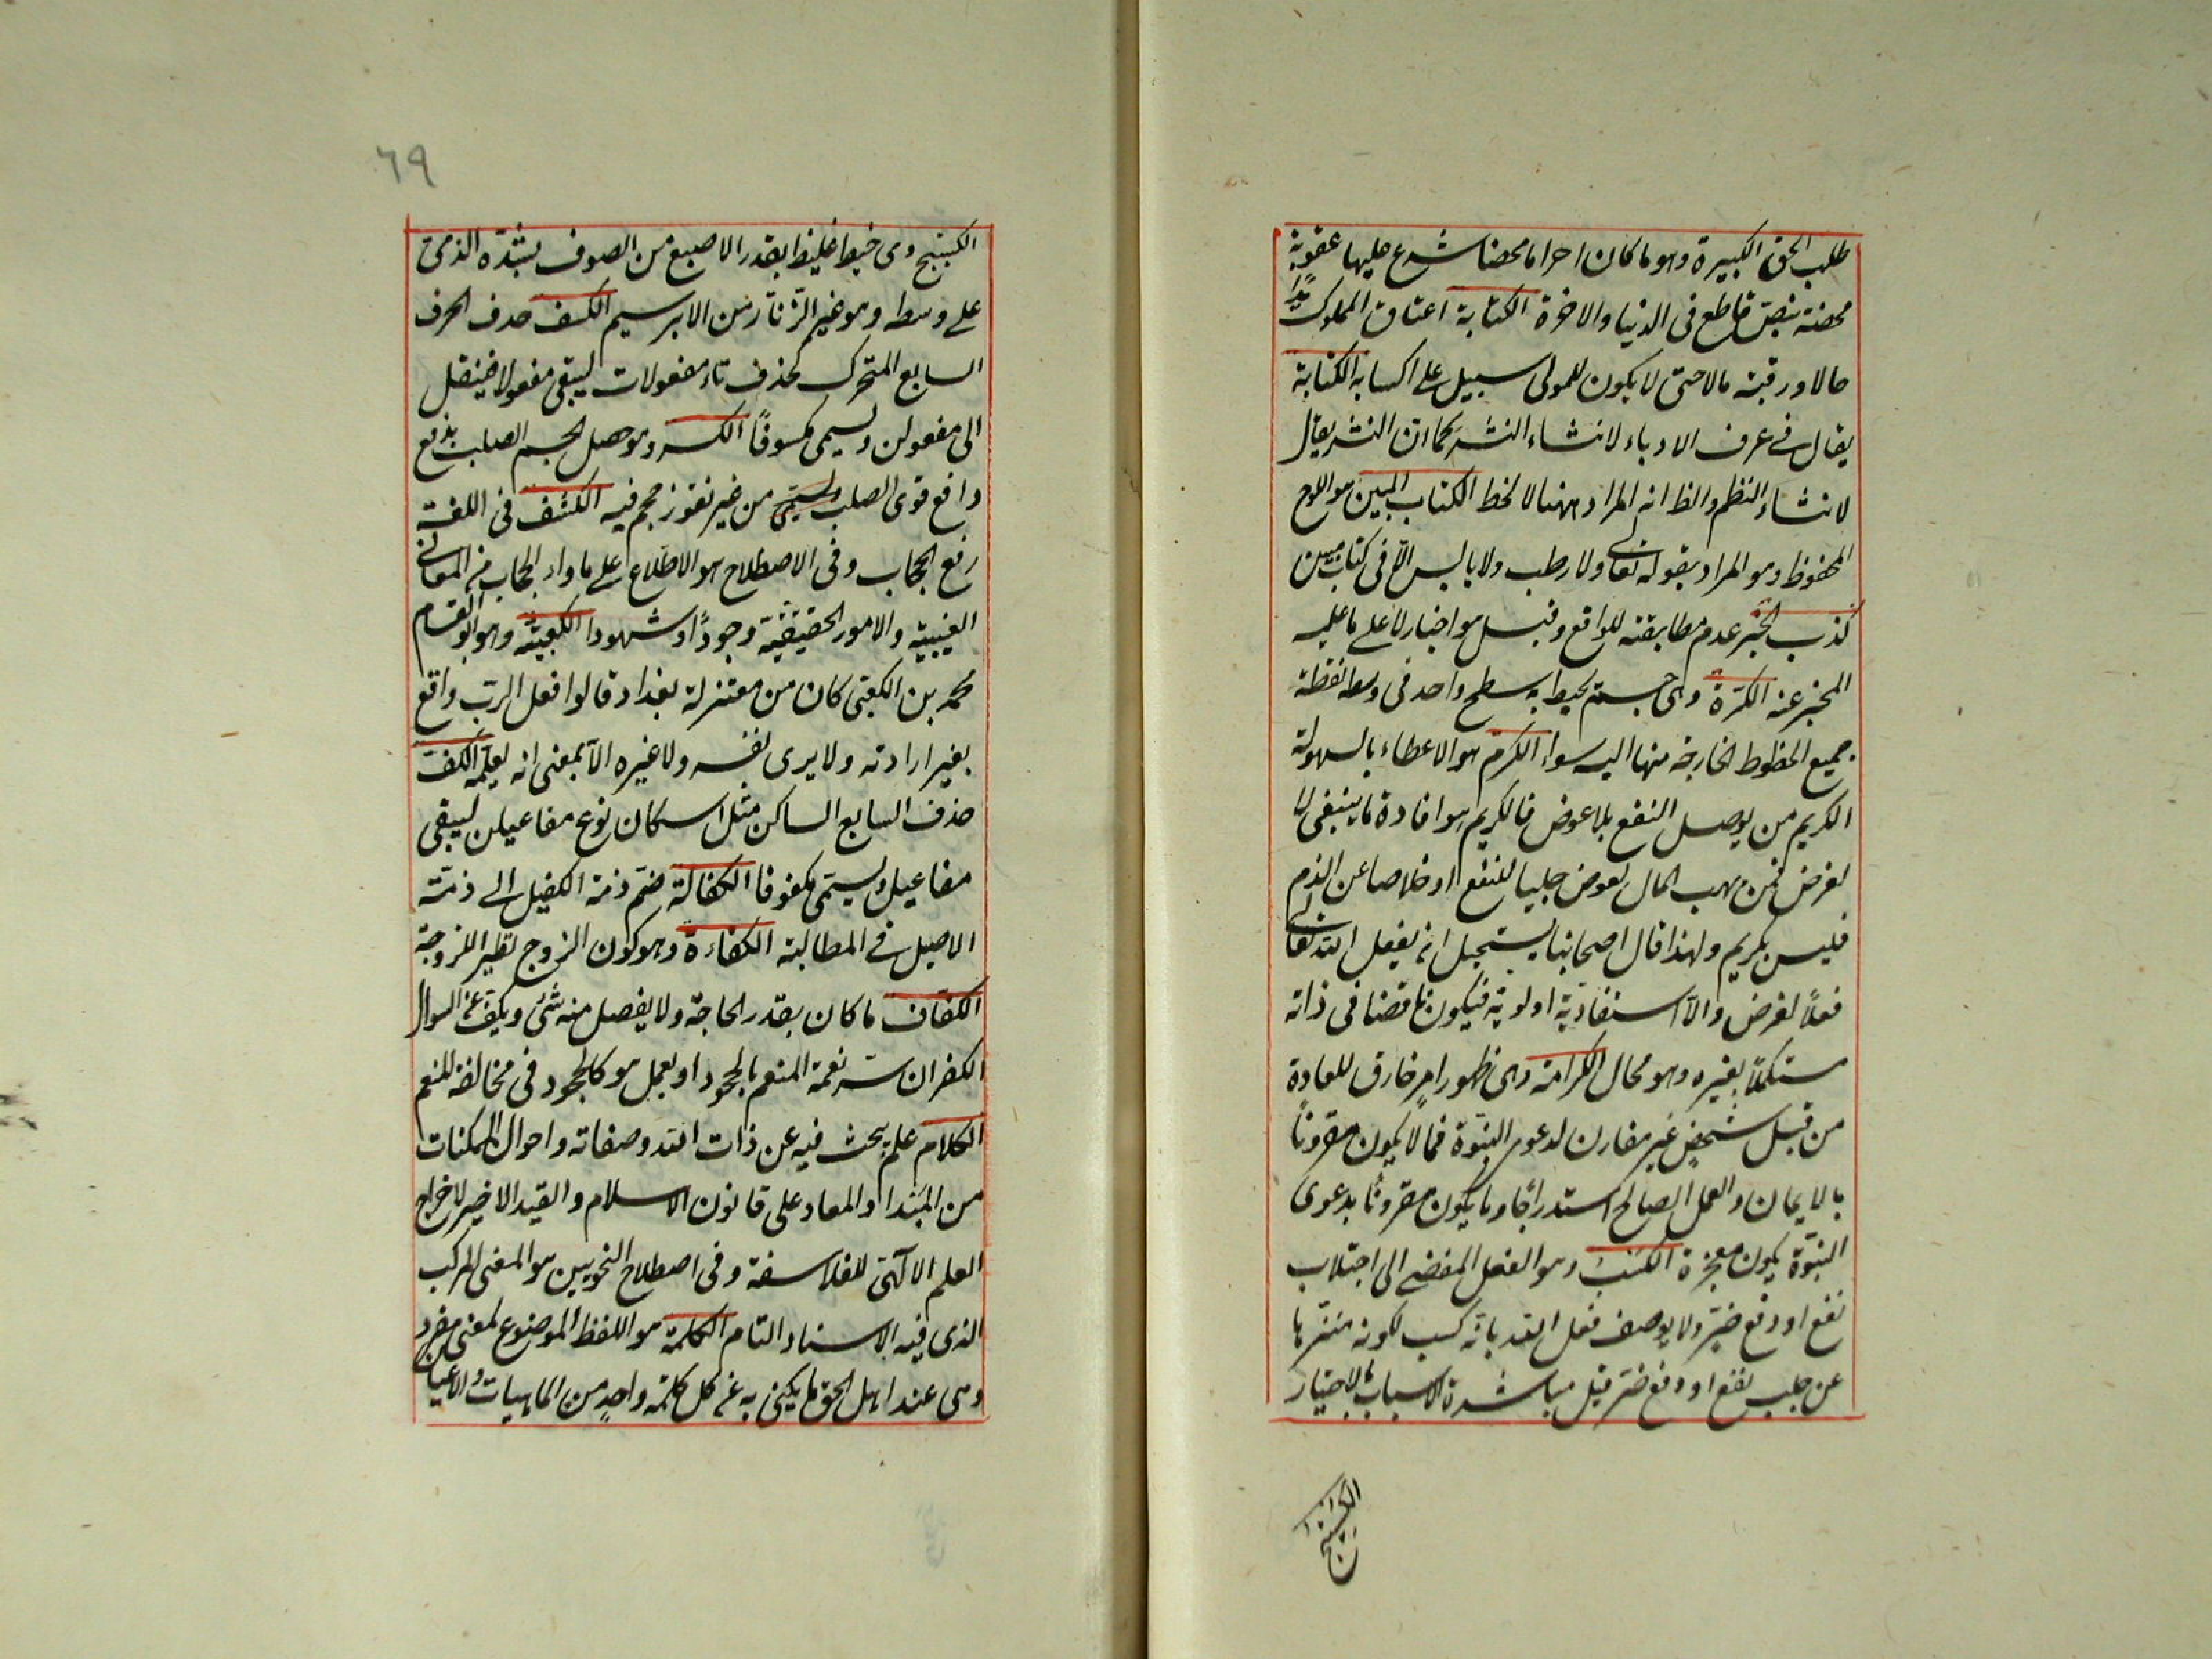 طلب الحق الكبيرة وهو ما كان احراما محضا شرع عليها عقوبة
محضة بنص قاطع فى الدنيا والاخرة الكتابة اعتاق المملوك يدا
حالا ورقبة مالا حتى لا يكون للمولى سبيل على اكسابه الكتابة
يقال فى عرف الادباء لانشاء النثر كما ان النثر يقال
لانشاء النظم والظ انه المراد ههنا لا الخط الكتاب المبين هو اللوح
المحفوظ وهو المراد بقوله تعالى ولا رطب ولا يابس الا فى كتاب مبين
كذب الخبر عدم مطابقته للواقع وقيل هو اخبار لا على ما عليه
المخبر عنه الكرة وهى جسم يحيط به سطح واحد فى وسطه نقطة
جميع الخطوط الخارجة منها اليه سواء الكرم هو الاعطاء بالسهولة
الكريم من يوصل النفع بلا عوض فالكريم هو افادة ما ينبغى لا
لغرض فمن يهب المال لعوض جلبا للنفع او خلاصا عن الذم
فليس بكريم ولهذا قال اصحابنا يستحيل ان يفعل الله تعالى
فعلا لغرض والا استفاد به اولوية فيكون ناقصا فى ذاته
مستكملا بغيره وهو محال الكرامة وهى ظهور امر خارق للعادة
من قبل شخص غير مقارن لدعوى النبوة فما لا يكون مقرونا
بالايمان والعمل الصالح استدراجا وما يكون مقرونا بدعوى
النبوة يكون معجزة الكسب وهو الفعل المفضى الى اجتلاب
نفع او دفع ضر ولا يوصف فعل الله بانه كسب لكونه منزها
عن جلب نفع او دفع ضر قيل مباشرة الاسباب بالاختيار
الكستيج
٦٩
الكستيج وهى خيط غليظ بقدر الاصبع من الصوف يشده الذمى
على وسطه وهو غير الزنار من الابريسم الكسف حذف الحرف
السابع المتحرك كحذف تاء مفعولات ليبقى مفعولا فينقل
الى مفعولن ويسمى مكسوفا الكسر وهو فصل الجسم الصلب بدفع
دافع قوى الصلب من غير نفوذ حجم فيه الكشف فى اللغة
رفع الحجاب وفى الاصطلاح هو الاطلاع على ما وراء الحجاب من المعانى
الغيبية والامور الحقيقية وجودا وشهودا الكعبية وهو ابو القاسم
محمد بن الكعبى كان من معتزلة بغداد قالوا فعل الرب واقع
بغير ارادته ولا يرى نفسه ولا غيره الا بمعنى انه يعلمه الكف
حذف السابع الساكن مثل اسكان نوع مفاعيلن ليبقى
مفاعيل ويسمى مكفوفا الكفالة ضم ذمة الكفيل الى ذمة
الاصيل فى المطالبة الكفاءة وهو كون الزوج نظير الزوجة
الكفاف ما كان بقدر الحاجة ولا يفضل منه شئ ويكف عن السوال
الكفران ستر نعمة المنعم بالجحود او بعمل هو كالجحود فى مخالفة المنعم
الكلام علم يبحث فيه عن ذات الله وصفاته واحوال الممكنات
من المبتدا والمعاد على قانون الاسلام والقيد الاخير لاخراج
العلم الالهى للفلاسفة وفى اصطلاح النحويين هو المعنى المركب
الذى فيه الاسناد التام الكلمة هو اللفظ الموضوع لمعنى مفرد
وهى عند اهل الحق ما يكنى به عن كل كلمة واحد من الماهيات والاعيان